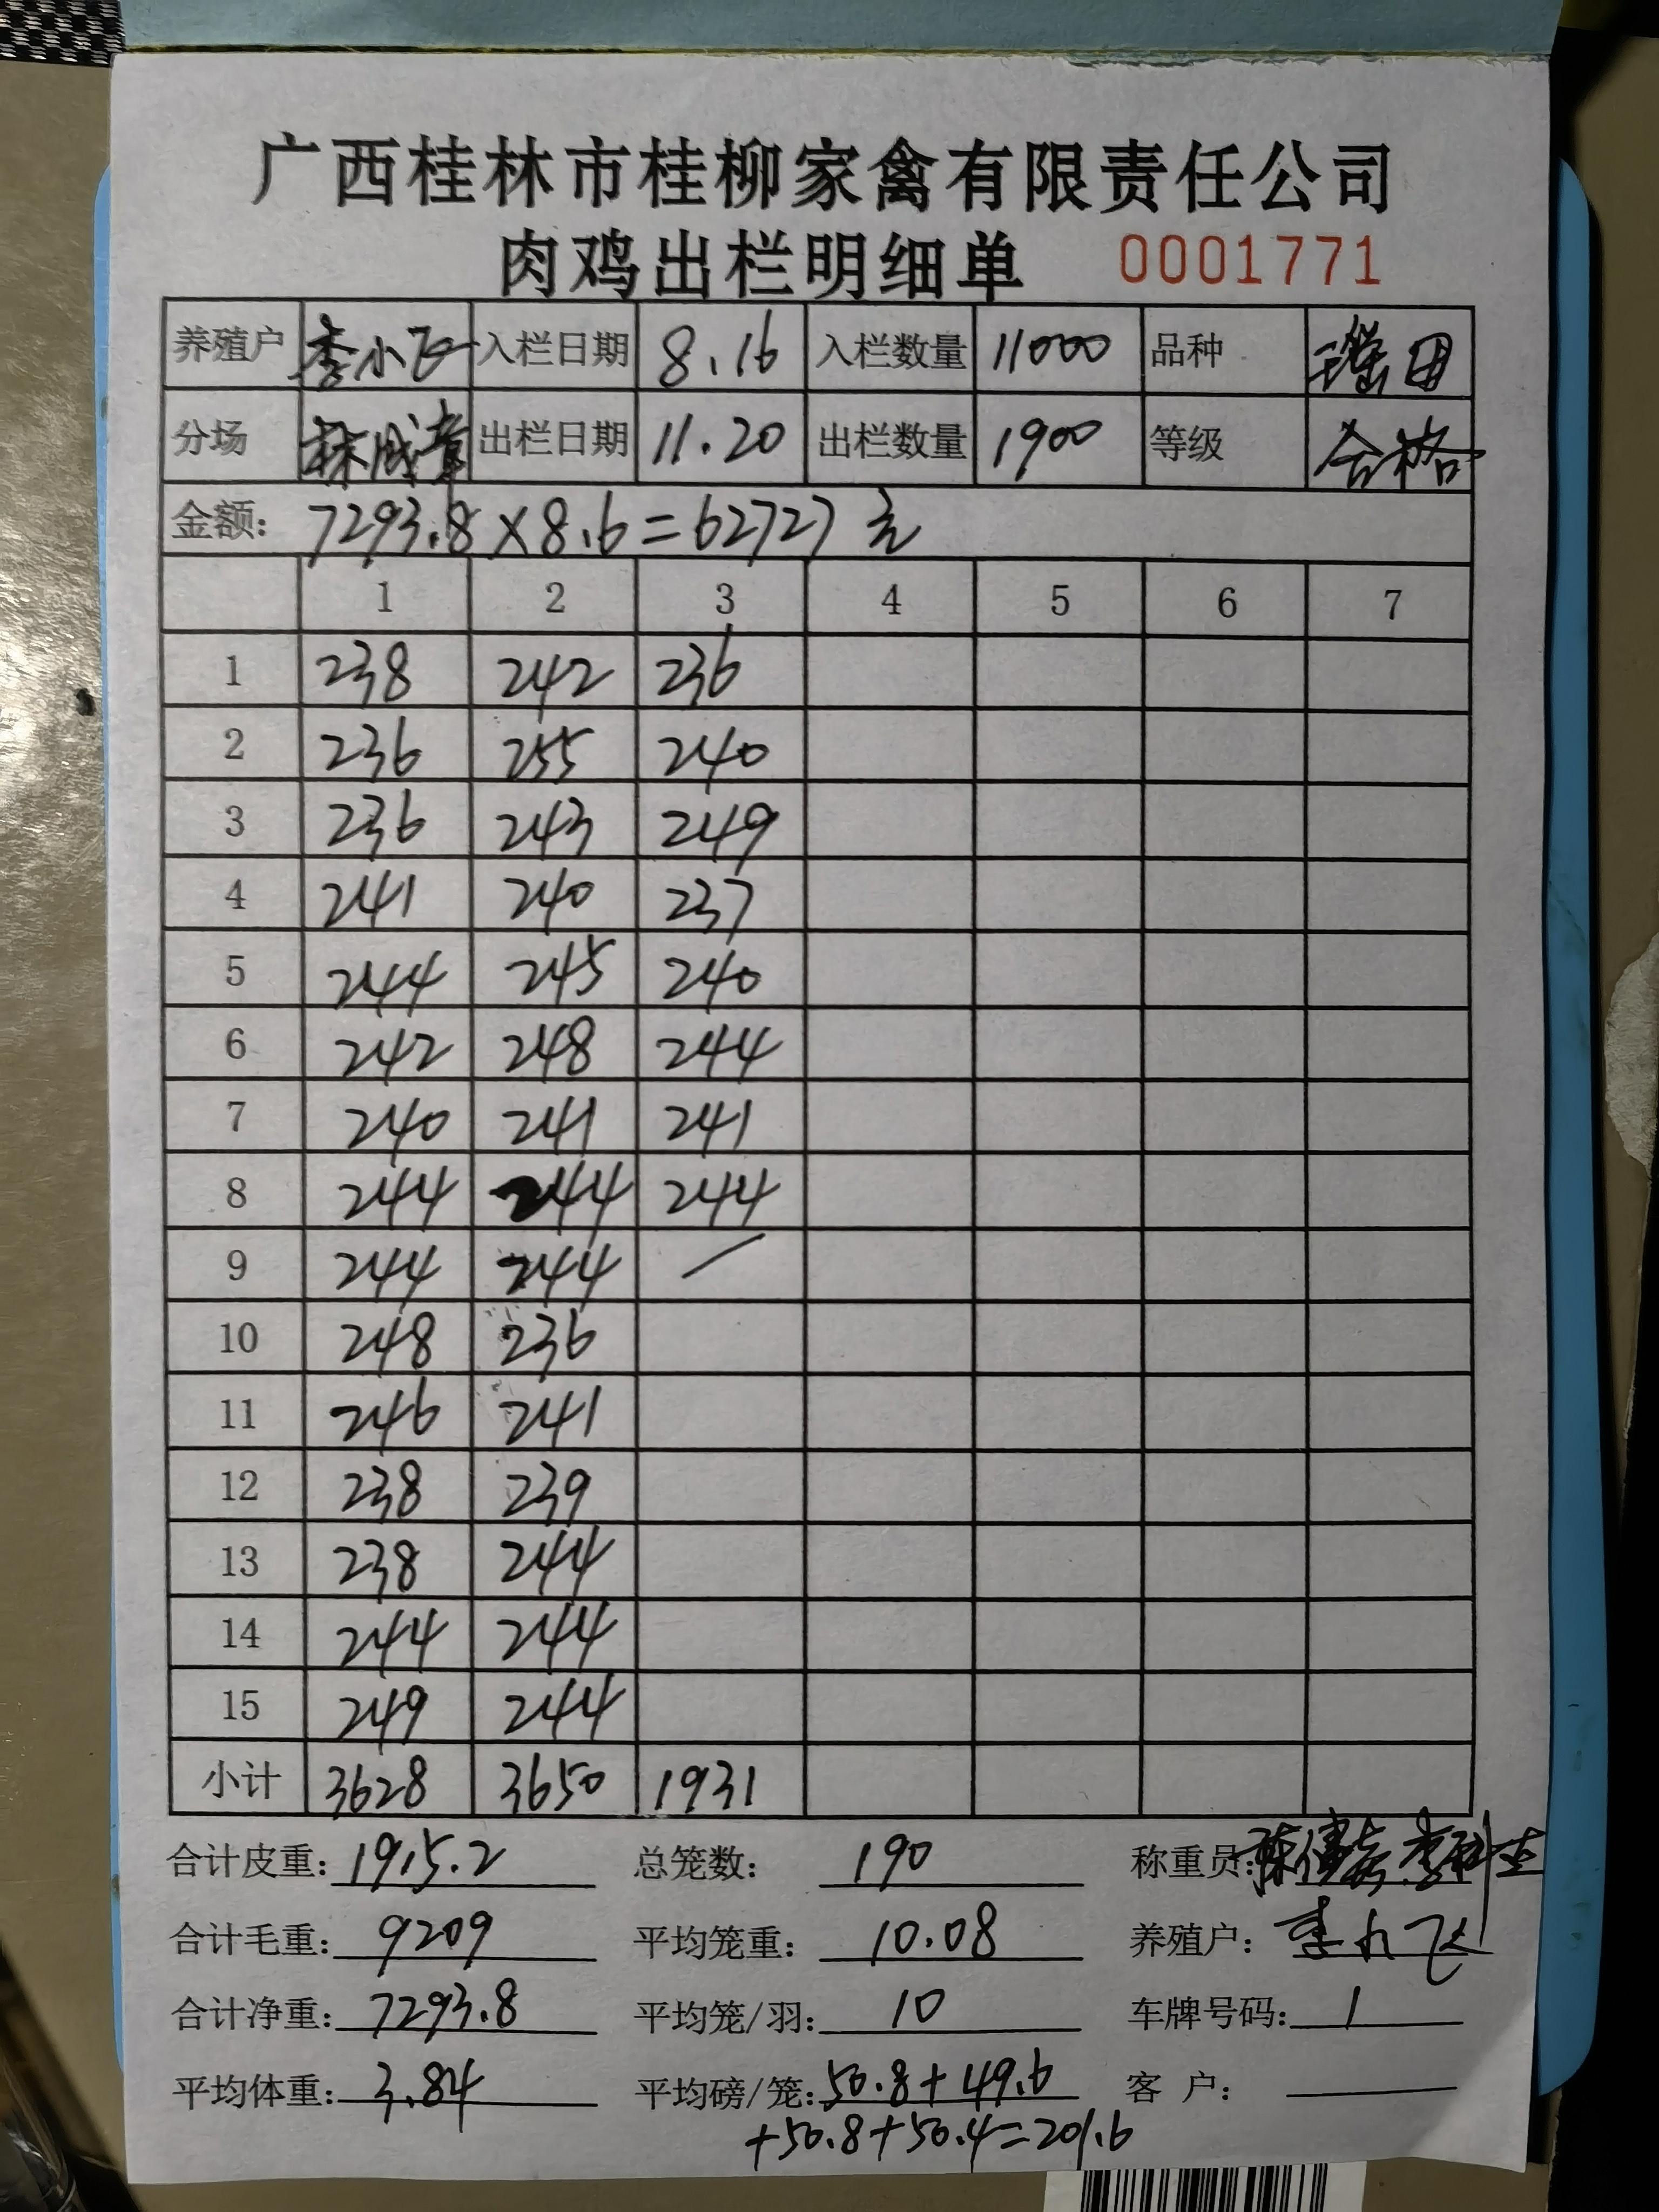 广西桂林市桂柳家禽有限责任公司
肉鸡出栏明细单 0001771
养殖户 李小飞 入栏日期 8.16 入栏数量 11000 品种 瑶田
分场 林成章 出栏日期 11.20 出栏数量 1900 等级 合格
金额: 7293.8×8.6=62727元
1 2 3 4 5 6 7
1 238 242 236
2 236 255 240
3 236 243 249
4 241 240 237
5 244 245 240
6 242 248 244
7 240 241 241
8 244 244 244
9 244 244 /
10 248 236
11 246 241
12 238 239
13 238 244
14 244 244
15 249 244
小计 3628 3650 1931
合计皮重: 1915.2 总笼数: 190 称重员:
合计毛重: 9209 平均笼重: 10.08 养殖户: 李小飞
合计净重: 7293.8 平均笼/羽: 10 车牌号码: 1
平均体重: 3.84 平均磅/笼: 50.8+49.6 客户:
+50.8+50.4=201.6